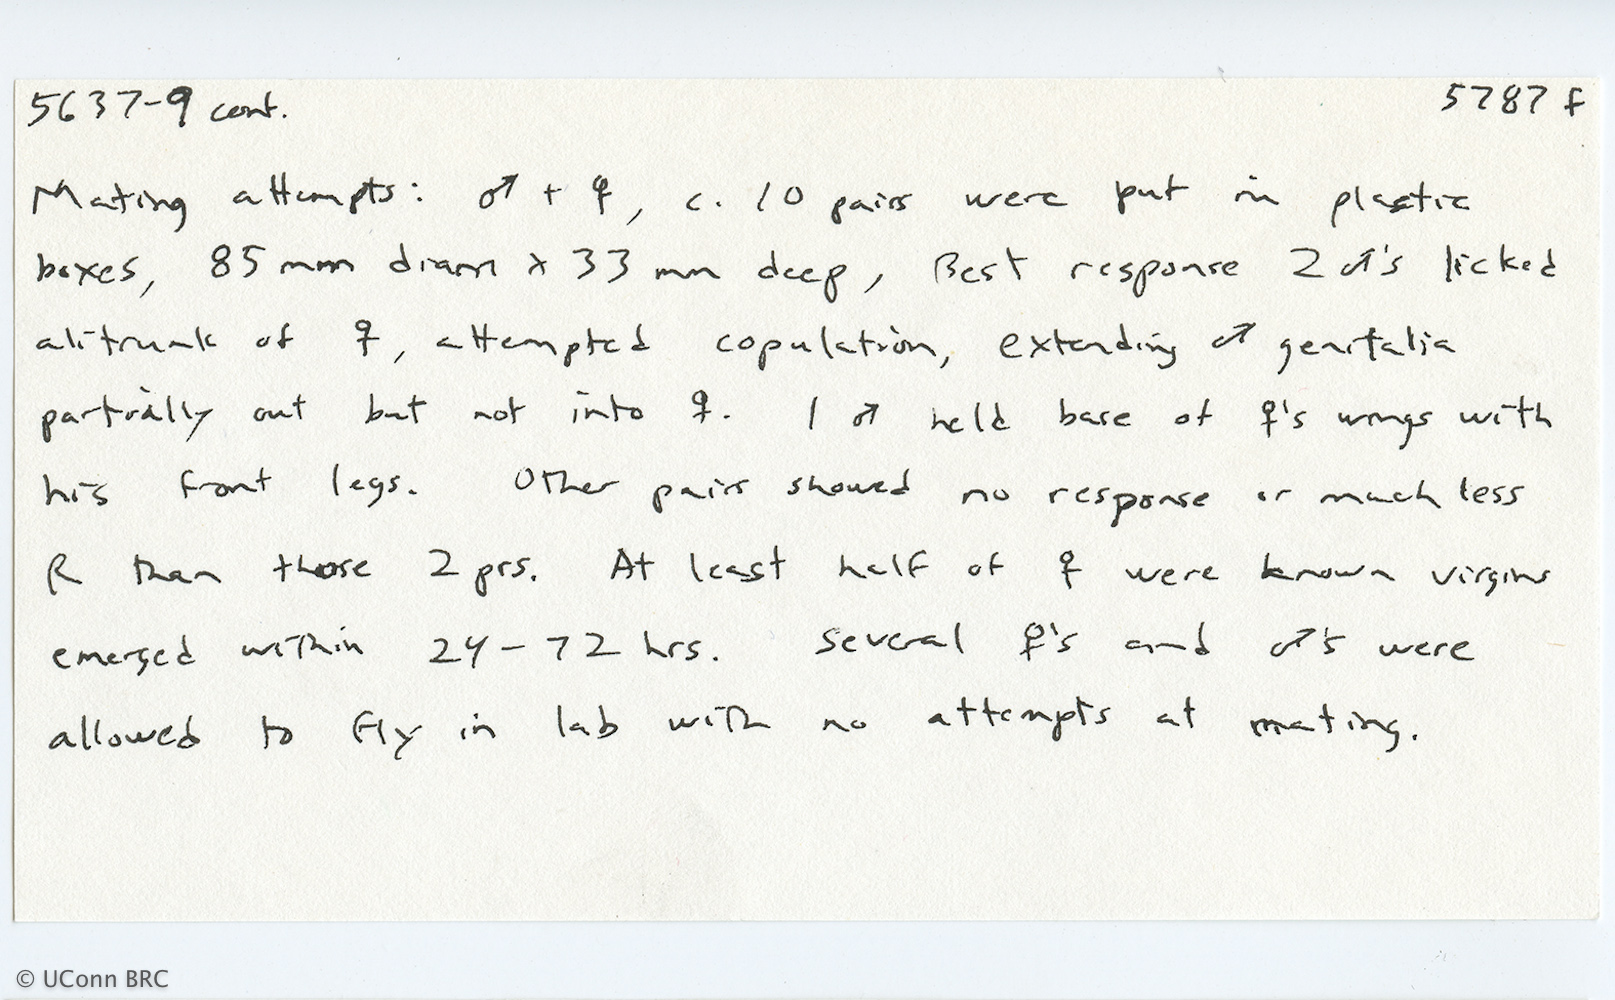 5637-9 cont. 5787 f
Mating attempts: ♂ + ♀, c. 10 pairs were put in plastic
boxes, 85 mm diam x 33 mm deep, Best response 2 ♂'s licked
alitrunk of ♀, attempted copulation, extending ♂ genitalia
partially out but not into ♀. 1 ♂ held base of ♀'s wings with
his front legs. Other pairs showed no response or much less
R than those 2 prs. At least half of ♀ were known virgins
emerged within 24-72 hrs. Several ♀'s and ♂'s were
allowed to fly in lab with no attempts at mating.
© UConn BRC